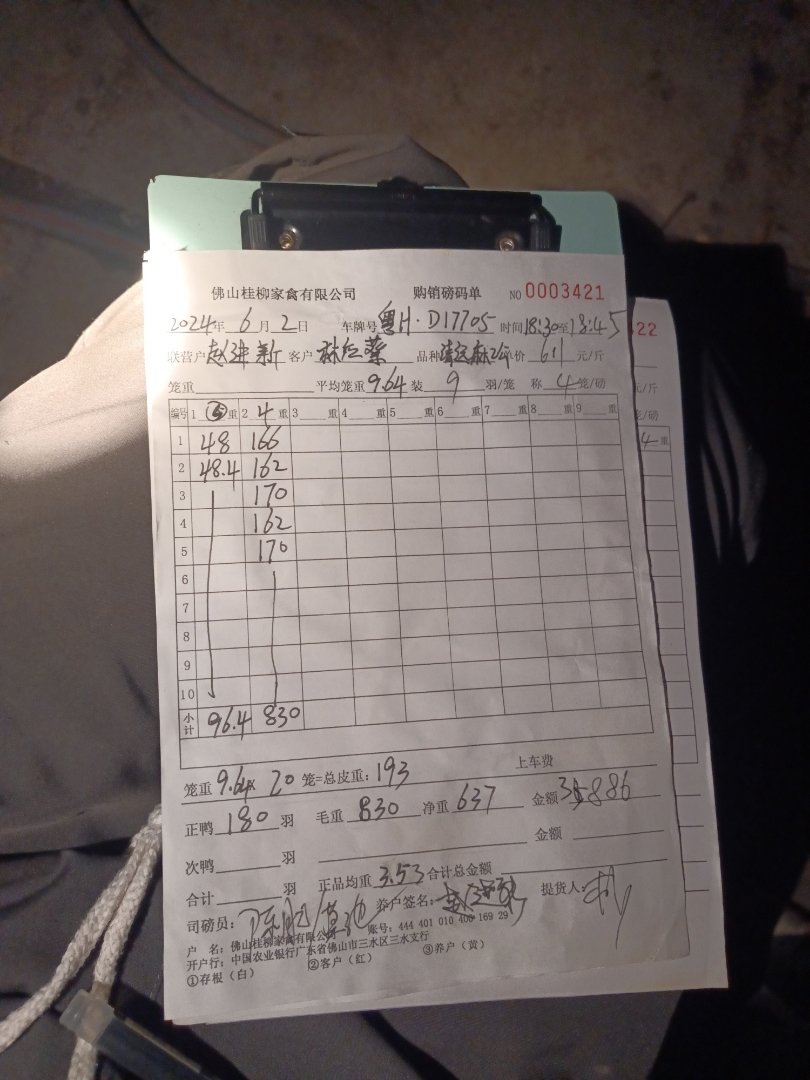 佛山桂柳家禽有限公司 购销磅码单 NO 0003421
2024年 6月 2日 车牌号 粤H·D17705 时间 18:30至18:45
联营户 赵进新 客户 品种 单价 6.1 元/斤
笼重 平均笼重 9.64 装 9 羽/笼 称 4 笼/磅
编号 1 5 重 2 4 重 3 重 4 重 5 重 6 重 7 重 8 重 9 重
1 48 166
2 48.4 162
3 170
4 162
5 170
6
7
8
9
10
小计 96.4 830
上车费
笼重 9.64 × 20 笼=总皮重: 193
正鸭 180 羽 毛重 830 净重 637 金额 3886
次鸭 羽 金额
合计 羽 正品均重 3.53 合计总金额
司磅员: 养户签名: 提货人:
户 名: 佛山桂柳家禽有限公 账号: 444 401 010 400 169 29
开户行: 中国农业银行广东省佛山市三水区三水支行
①存根（白） ②客户（红） ③养户（黄）
22
元/斤
笼/磅
4 重